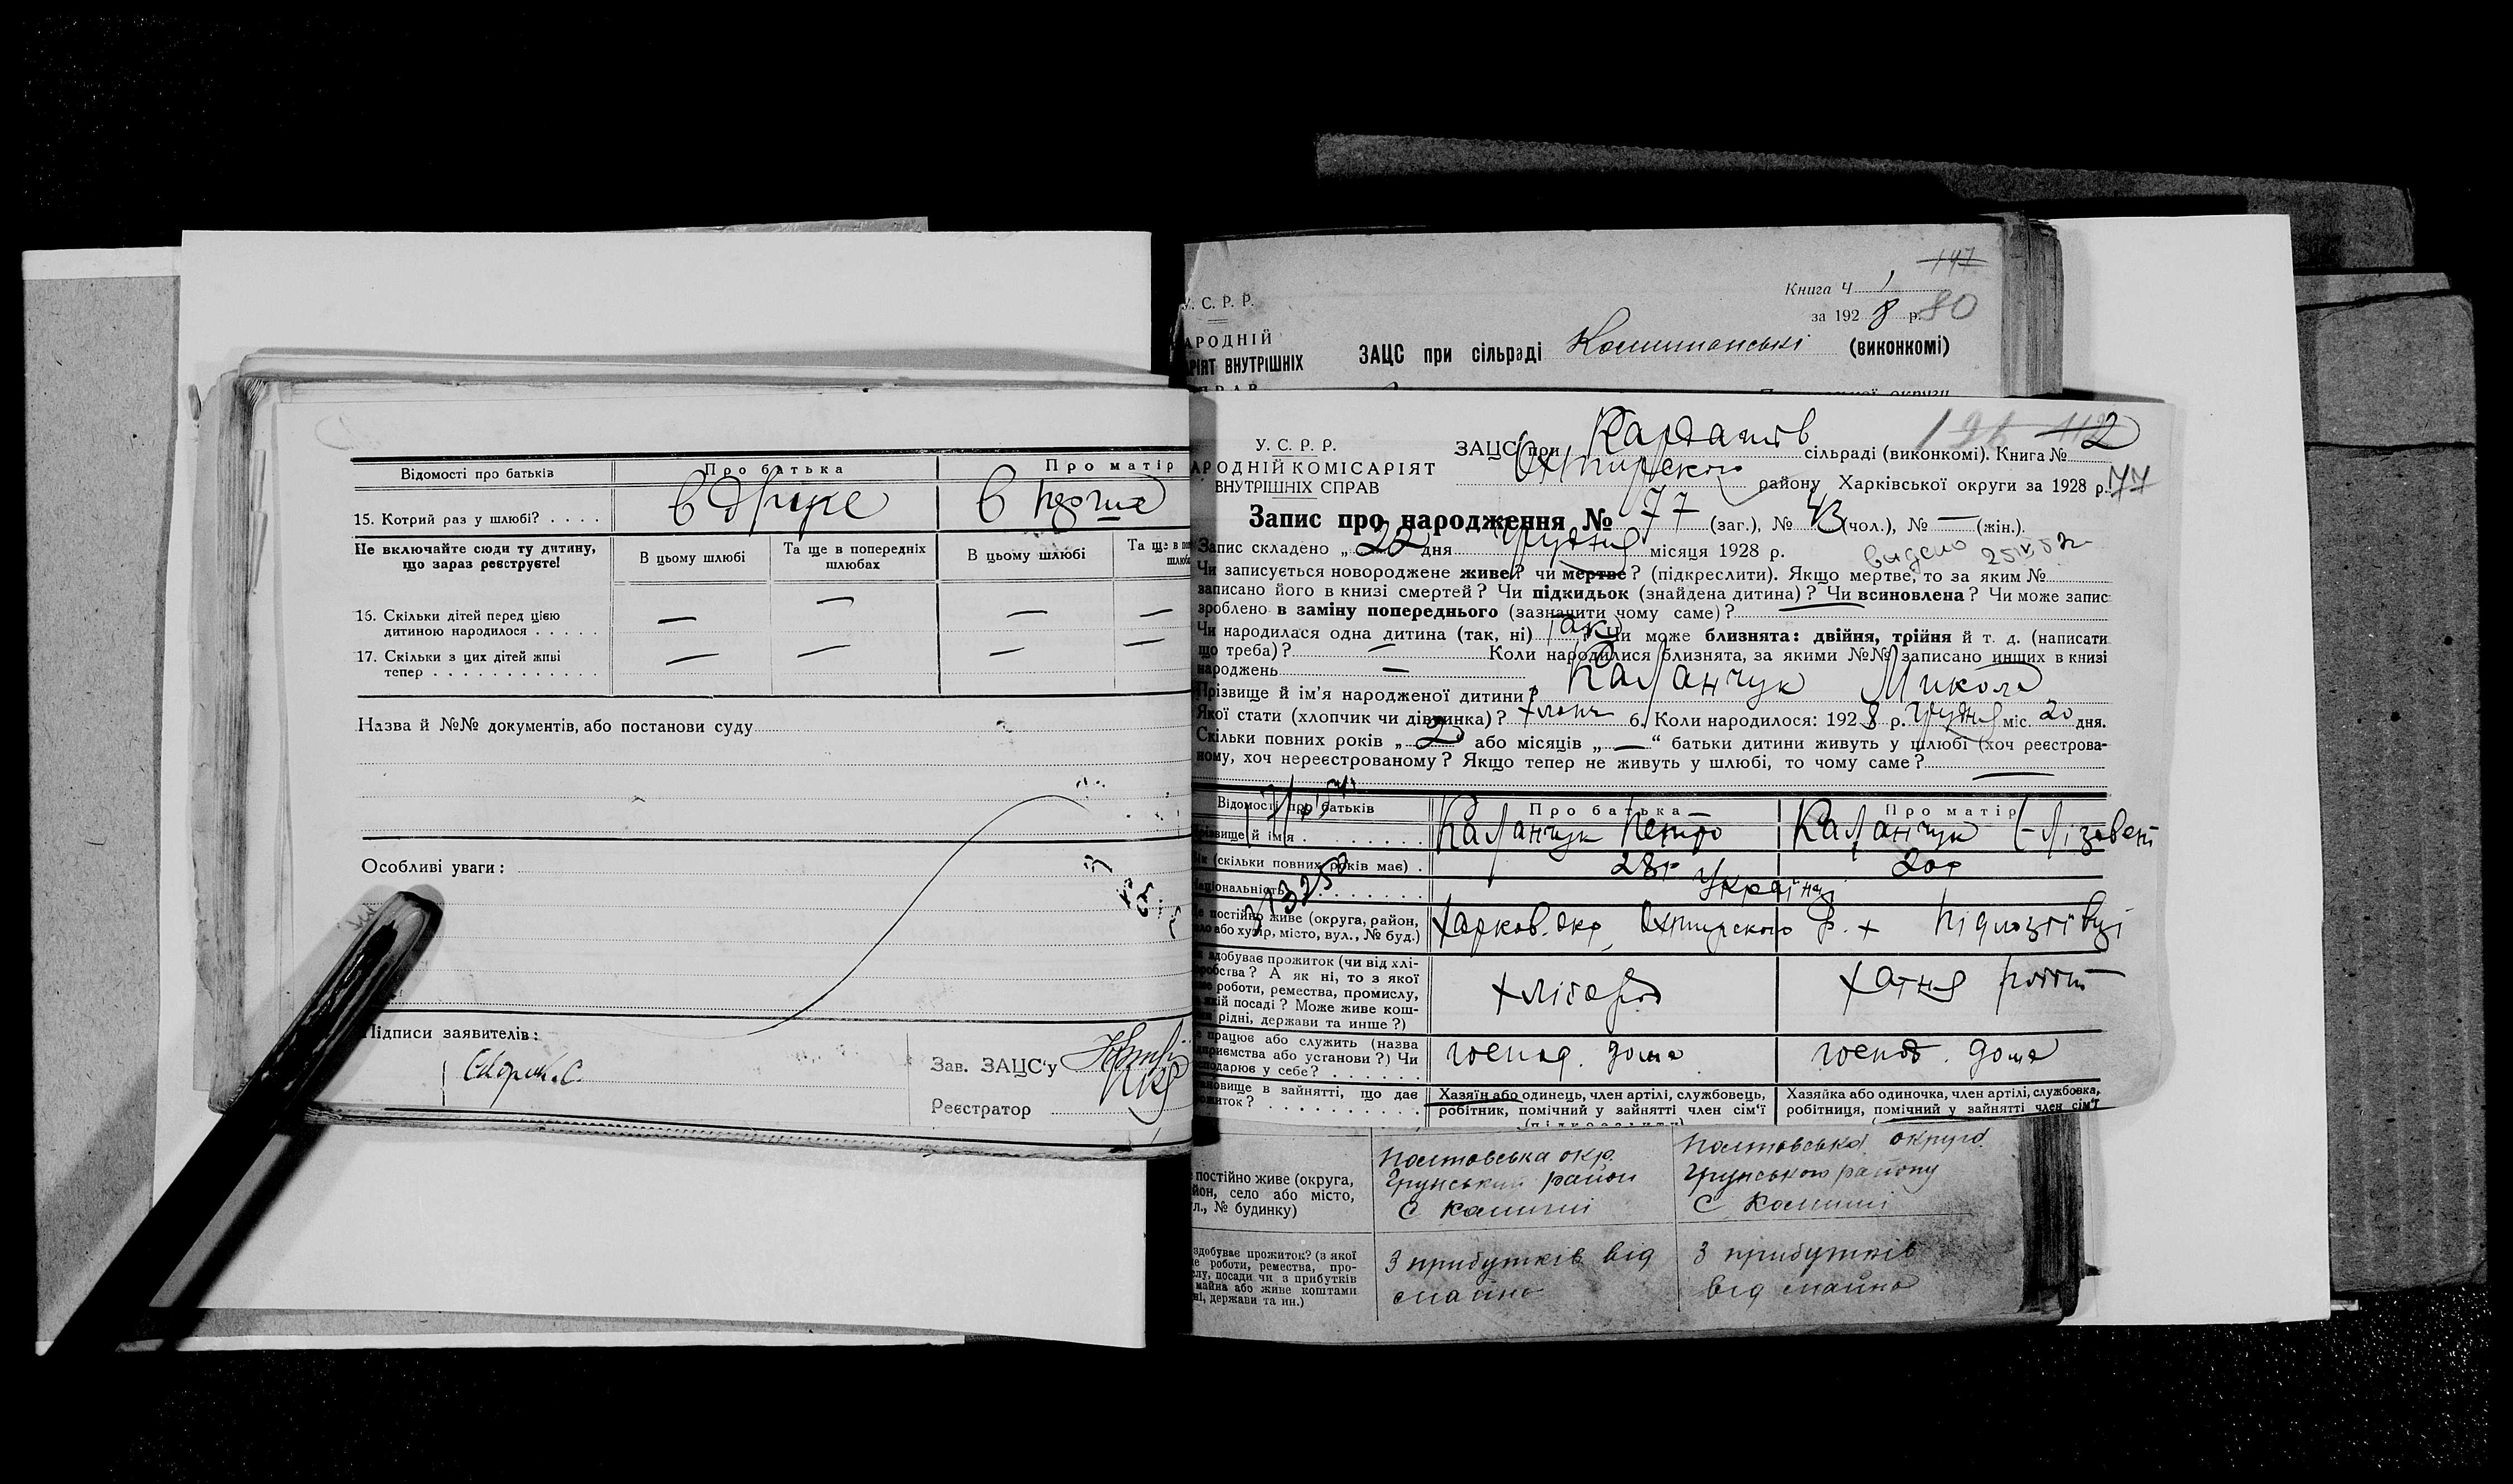 Відомості про батьків
Про батька
Про матір
15. Котрий раз у шлюбі? . . . .
в друге
в перше
Не включайте сюди ту дитину,
що зараз реєструєте!
В цьому шлюбі
Та ще в попередніх
шлюбах
В цьому шлюбі
Та ще в поп
шлюб
16. Скільки дітей перед цією
дитиною народилося . . . . .
— — — —
17. Скільки з цих дітей живі
тепер . . . . . . . . . . . .
— — — —
Назва й №№ документів, або постанови суду
Особливі уваги :
Підписи заявителів :
Зав. ЗАЦС'у
Реєстратор
147
Книга Ч 1
У. С. Р. Р.
за 1928 р. 80
АРОДНІЙ
РІЯТ ВНУТРІШНІХ
ПРАВ
ЗАЦС при сільраді (виконкомі)
У. С. Р. Р.
АРОДНІЙ КОМІСАРІЯТ
ВНУТРІШНІХ СПРАВ
ЗАЦС при сільраді (виконкомі). Книга № 2
Охтирського району Харківської округи за 1928 р. 77
Запис про народження № 77 (заг.), № 43 (чол.), № — (жін.).
Запис складено „ 22 дня грудня місяця 1928 р.
видано
Чи записується новороджене живе? чи мертве? (підкреслити). Якщо мертве, то за яким №
записано його в книзі смертей? Чи підкидьок (знайдена дитина)? Чи всиновлена? Чи може запис
зроблено в заміну попереднього (зазначити чому саме)? —
Чи народилася одна дитина (так, ні) так Чи може близнята: двійня, трійня й т. д. (написати
що треба)? — Коли народилися близнята, за якими №№ записано инших в книзі
народжень —
Прізвище й ім'я народженої дитини? Каланчук Микола
Якої стати (хлопчик чи дівчинка)? хлопч 6. Коли народилося: 1928 р. грудня міс. 20 дня.
Скільки повних років „ 2 “ або місяців „ — “ батьки дитини живуть у шлюбі (хоч реєстрова-
ному, хоч нереєстрованому? Якщо тепер не живуть у шлюбі, то чому саме? —
Відомості про батьків
Про батька
Про матір
різвище й ім'я . . . . . . . .
Каланчук Петро
Каланчук Єлізавет
ік (скільки повних років має) .
28р
20р
аціональність . . . . . . . .
Україн
е постійно живе (округа, район,
ло або хутір, місто, вул., № буд.)
Харков. окр, Охтирского р. х
здобуває прожиток (чи від хлі-
робства? А як ні, то з якої
ме роботи, ремества, промислу,
якій посаді? Може живе кош-
ми рідні, держави та инше?)
хлібороб
хатня робот
е працює або служить (назва
дприємства або установи?) Чи
сподарює у себе? . . . . . .
господ. дома
господ. дома
ановище в зайнятті, що дає
рожиток? . . . . . . . . . .
Хазяїн або одинець, член артілі, службовець,
робітник, помічний у зайнятті член сім'ї
Хазяйка або одиночка, член артілі, службовка,
робітниця, помічний у зайнятті член сім'ї
е постійно живе (округа,
йон, село або місто,
л., № будинку)
Полтовська окр.
Грунський район
Полтовська округа
Грунського району
здобуває прожиток? (з якої
е роботи, ремества, про-
слу, посади чи з прибутків
майна або живе коштами
ні, держави та ин.)
З прибутків від
майна
З прибутків
від майна